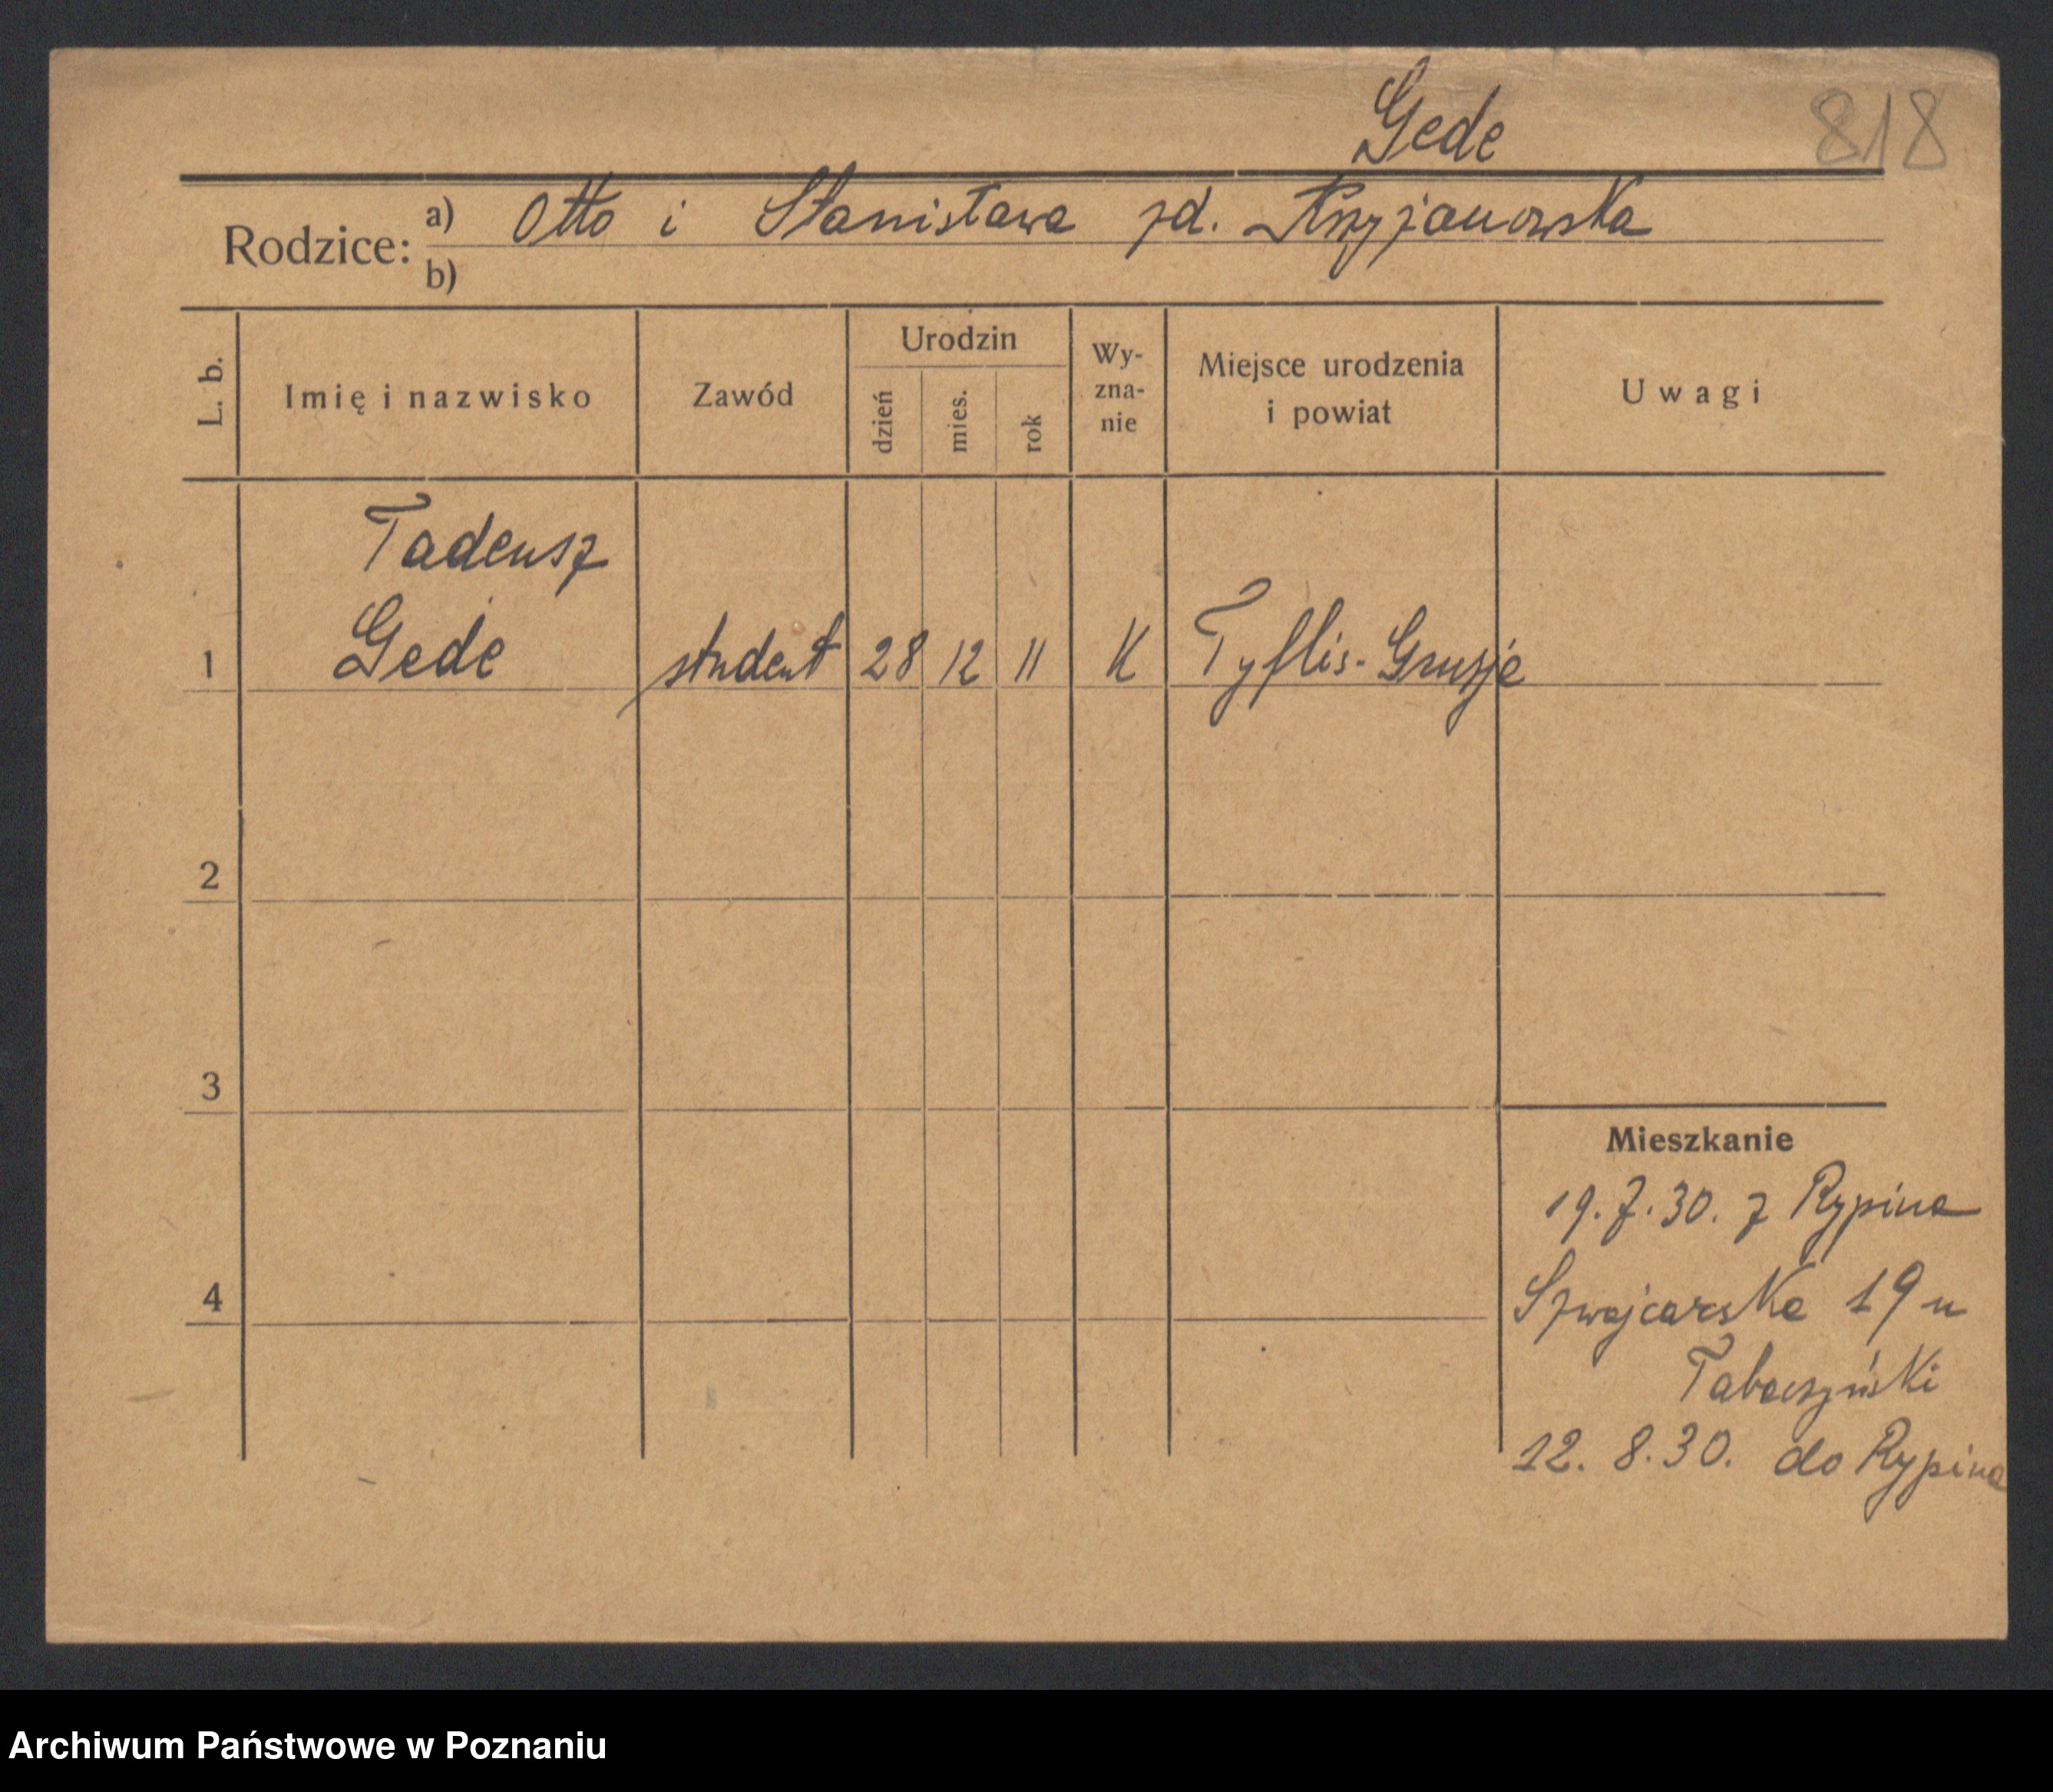 Gede 818
Rodzice: a) Otto i Stanisława zd. Krzyżanowska
b)
L. b. Imię i nazwisko Zawód Urodzin dzień mies. rok Wy-zna-nie Miejsce urodzenia i powiat Uwagi
Tadeusz
1 Gede student 28 12 11 K Tyflis - Gruzje
2
3
Mieszkanie
19.7.30. z Rypina
4 Szwajcarska 19 u
Tabaczyński
12. 8.30. do Rypina
Archiwum Państwowe w Poznaniu